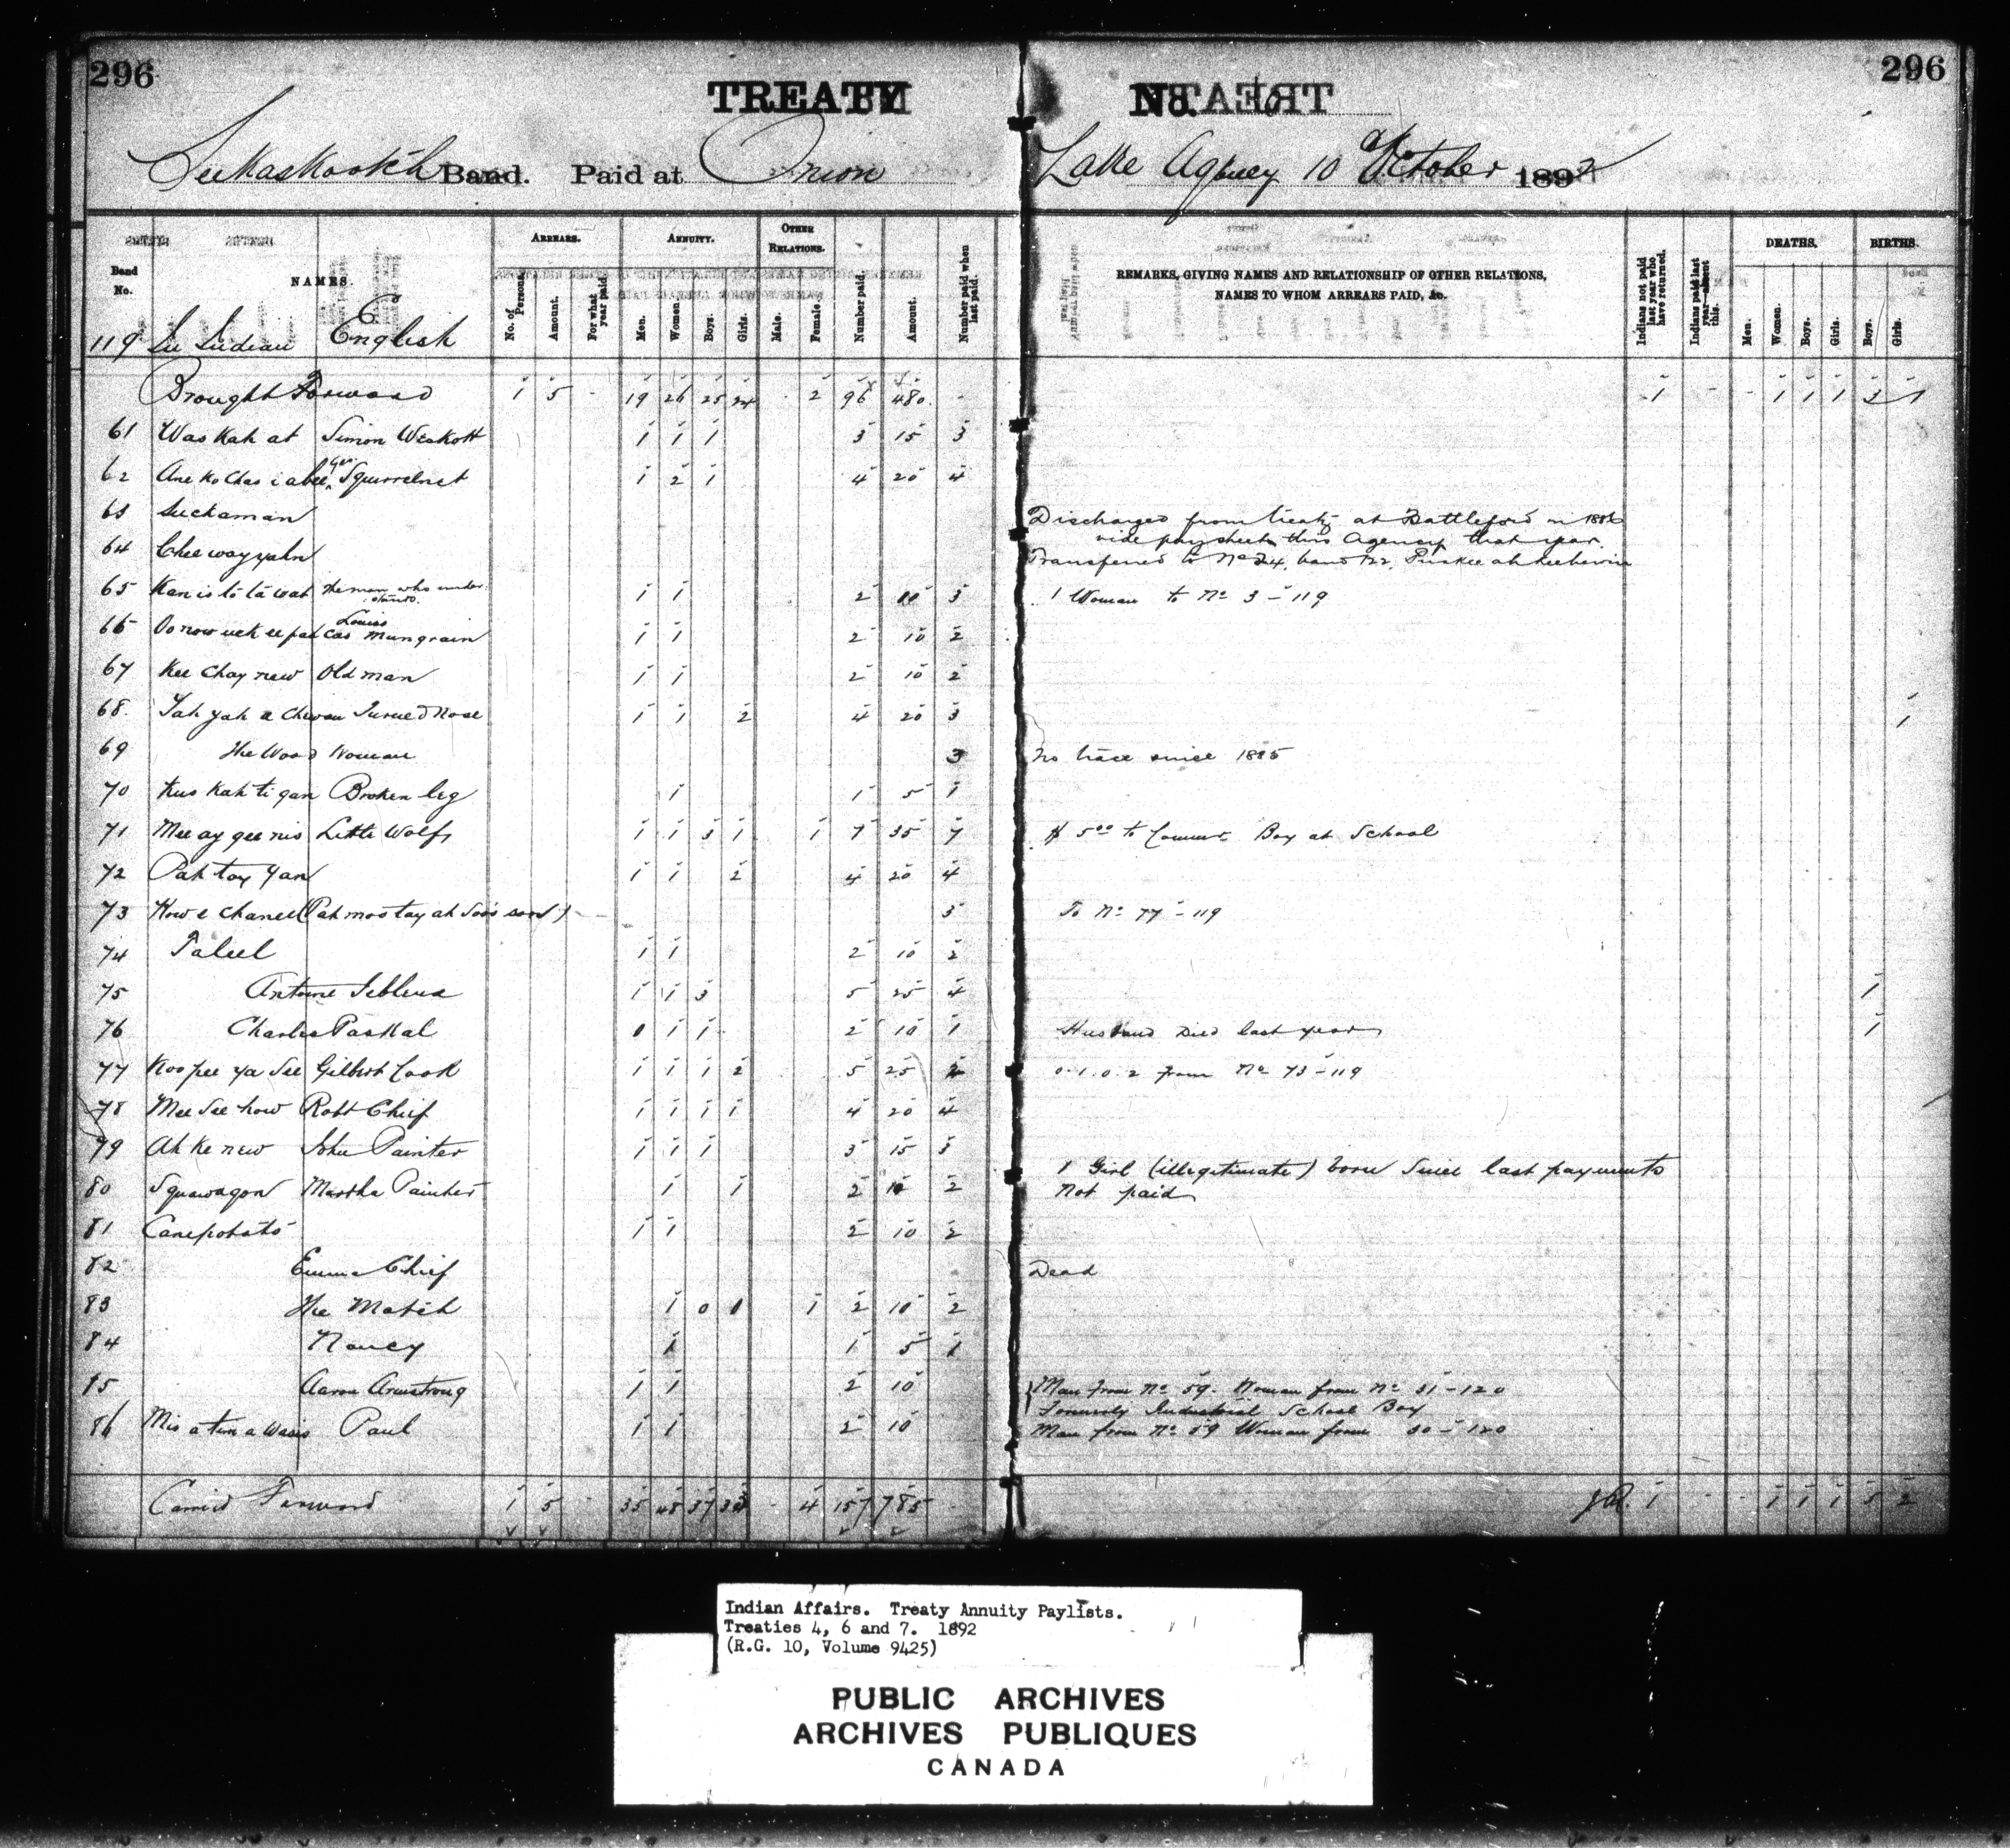 296
296
TREATY
No. 6
Seekaskootch Band. Paid at Onion Lake Agency 10 October 1892
Band No.
NAMES.
ARREARS.
No. of Persons.
Amount.
For what year paid.
ANNUITY.
Men.
Women.
Boys.
Girls.
OTHER RELATIONS.
Male.
Female.
Number paid.
Amount.
Number paid when last paid.
REMARKS, GIVING NAMES AND RELATIONSHIP OF OTHER RELATIONS,
NAMES TO WHOM ARREARS PAID, &c.
Indians not paid last year who have returned.
Indians paid last year—absent this.
DEATHS.
Men.
Women.
Boys.
Girls.
BIRTHS.
Boys.
Girls.
119 English
Brought Forward 1 5 - 19 26 25 24 - 2 96 480 - 1 - - 1 1 1 3 1
61 Waskahat Simon Weskott 1 1 1 3 15 3
62 Geo. Squirrelnet 1 2 1 4 20 4
63 Suckaman Discharged from treaty at Battleford in 1886
vide paysheets this Agency that year.
64 Cheewayyahn Transferred to No 24, band 122
65 Kanistotawat The man who understands. 1 1 2 10 3 1 Woman to No 3-119
66 Louiso Mungrain 1 1 2 10 2
67 Kee chay new Old man 1 1 2 10 2
68 Yah yah a chewan Turned Nose 1 1 2 4 20 3 1
69 The Wood Woman 3 No trace since 1885
70 Kus kah ti gan Broken leg 1 1 5 1
71 Mee ay gee nis Little Wolf 1 1 3 1 1 7 35 7 $5.00 to Commr Boy at School
72 Pah tay yan 1 1 2 4 20 4
73 How e chanee (Pah moo tay ah soo's son) 3 To No 77-119
74 Taleel 1 1 2 10 2
75 Antoine 1 1 3 5 25 4 1
76 Charles Paskal 0 1 1 2 10 1 Husband Died last year 1
77 Koo pee ya see Gilbert Cook 1 1 1 2 5 25 2 0.1.0.2 from No 73-119
78 Mee see how Robt Chief 1 1 1 1 4 20 4
79 Ah ke new John Painter 1 1 1 3 15 3
80 Squawagon Martha Painter 1 1 2 10 2 1 Girl (illegitimate) born since last payments
Not paid
81 Canepotato 1 1 2 10 2
82 Emma Chief Dead
83 The Match 1 0 0 1 2 10 2
84 Nancy 1 1 5 1
85 Aaron Armstrong 1 1 2 10 Man from No 59. Woman from No 31-120
Formerly Industrial School Boy
86 Mis a tim a wasis Paul 1 1 2 10 Man from No 59 Woman from 30-120
Carried Forward 1 5 - 35 48 37 33 - 4 157 785 - 1 - - 1 1 1 5 2
Indian Affairs. Treaty Annuity Paylists.
Treaties 4, 6 and 7. 1892
(R.G. 10, Volume 9425)
PUBLIC ARCHIVES
ARCHIVES PUBLIQUES
CANADA